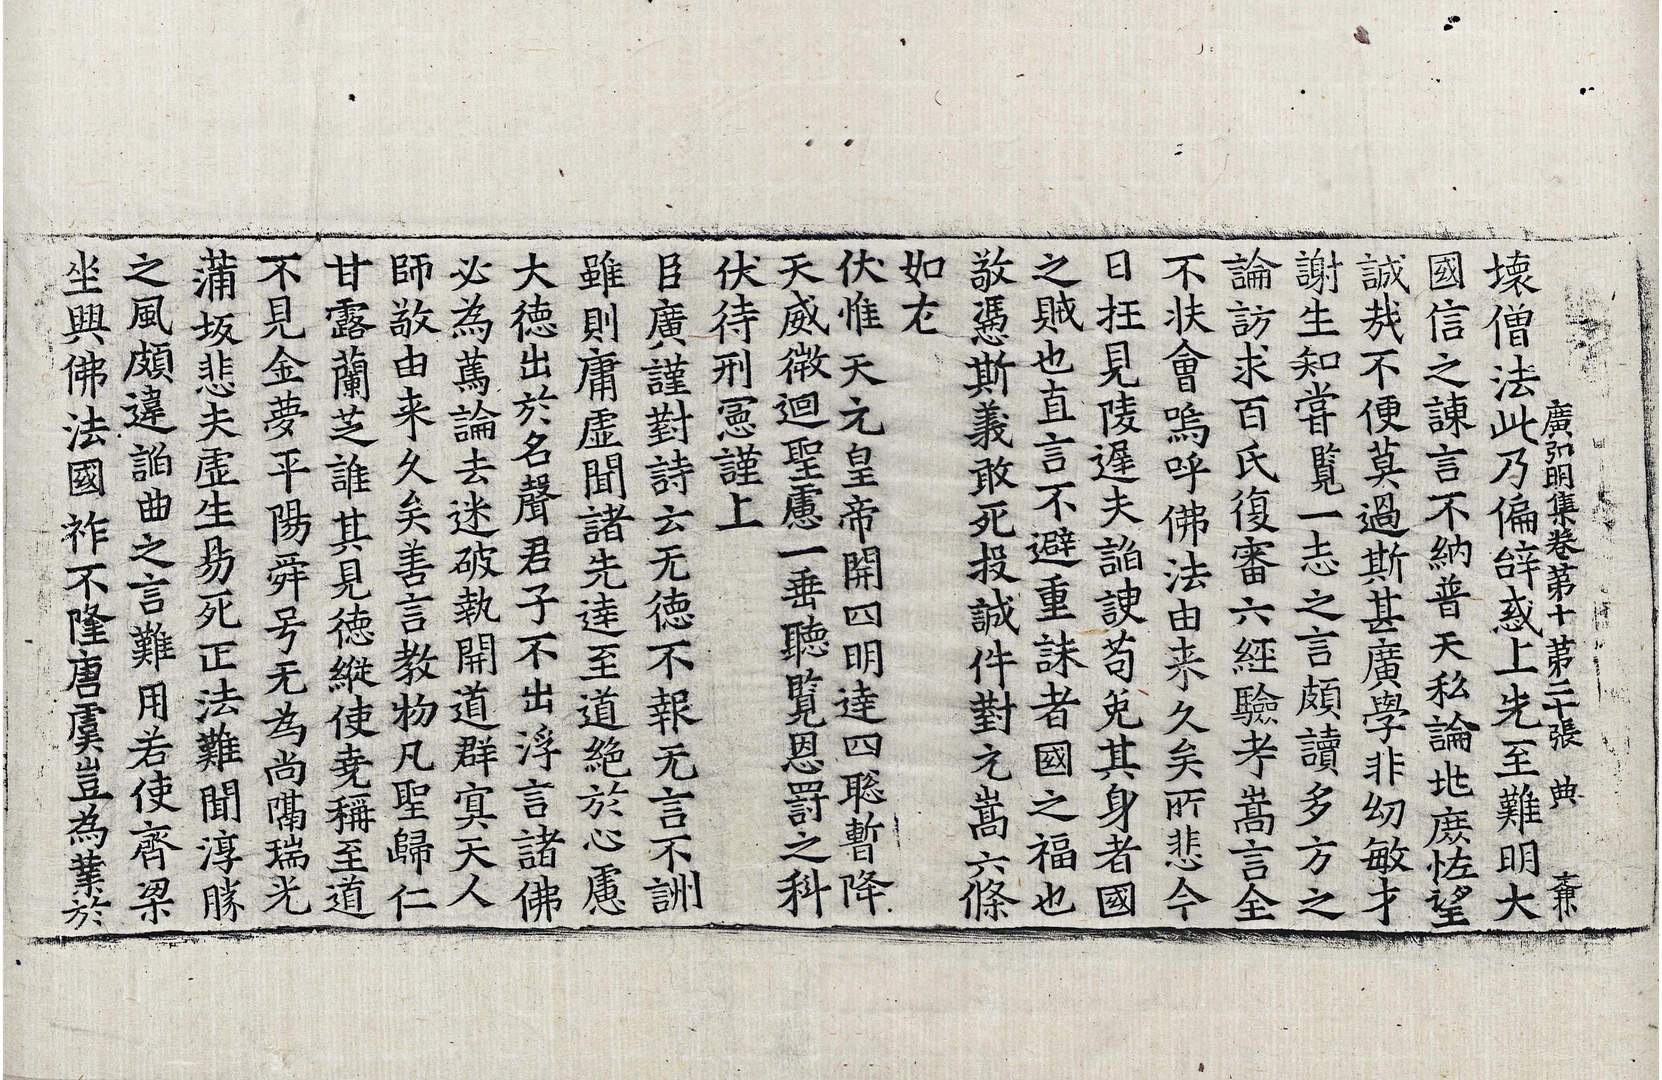 廣弘明集卷第十 第二十張 典
壞僧法此乃偏辝惑上先至難明大
國信之諫言不納普天私論地庶怪望
誠㦲不便莫過斯甚廣學非幼敏才
謝生知甞覽一志之言頗讀多方之
論訪求百氏復審六經驗考嵩言全
不扶會嗚呼佛法由来久矣所悲今
日抂見陵遲夫諂諛苟免其身者國
之賊也直言不避重誅者國之福也
敬憑斯義敢死投誠件對元嵩六條
如左
伏惟 天元皇帝開四明逹四聡暫降
天威微迴聖慮一垂聽覽恩罸之科
伏待刑憲謹上
臣廣謹對詩云无德不報无言不詶
雖則庸虚聞諸先逹至道絶於心慮
大德出於名聲君子不出浮言諸佛
必為萬論去迷破執開道群冥天人
師敬由来久矣善言教物凡聖歸仁
甘露蘭芝誰其見德縱使堯稱至道
不見金夢平陽舜号无為尚隔瑞光
蒲坂悲夫虚生易死正法難聞淳勝
之風頗違諂曲之言難用若使齊梁
坐興佛法國祚不隆唐虞豈為業於